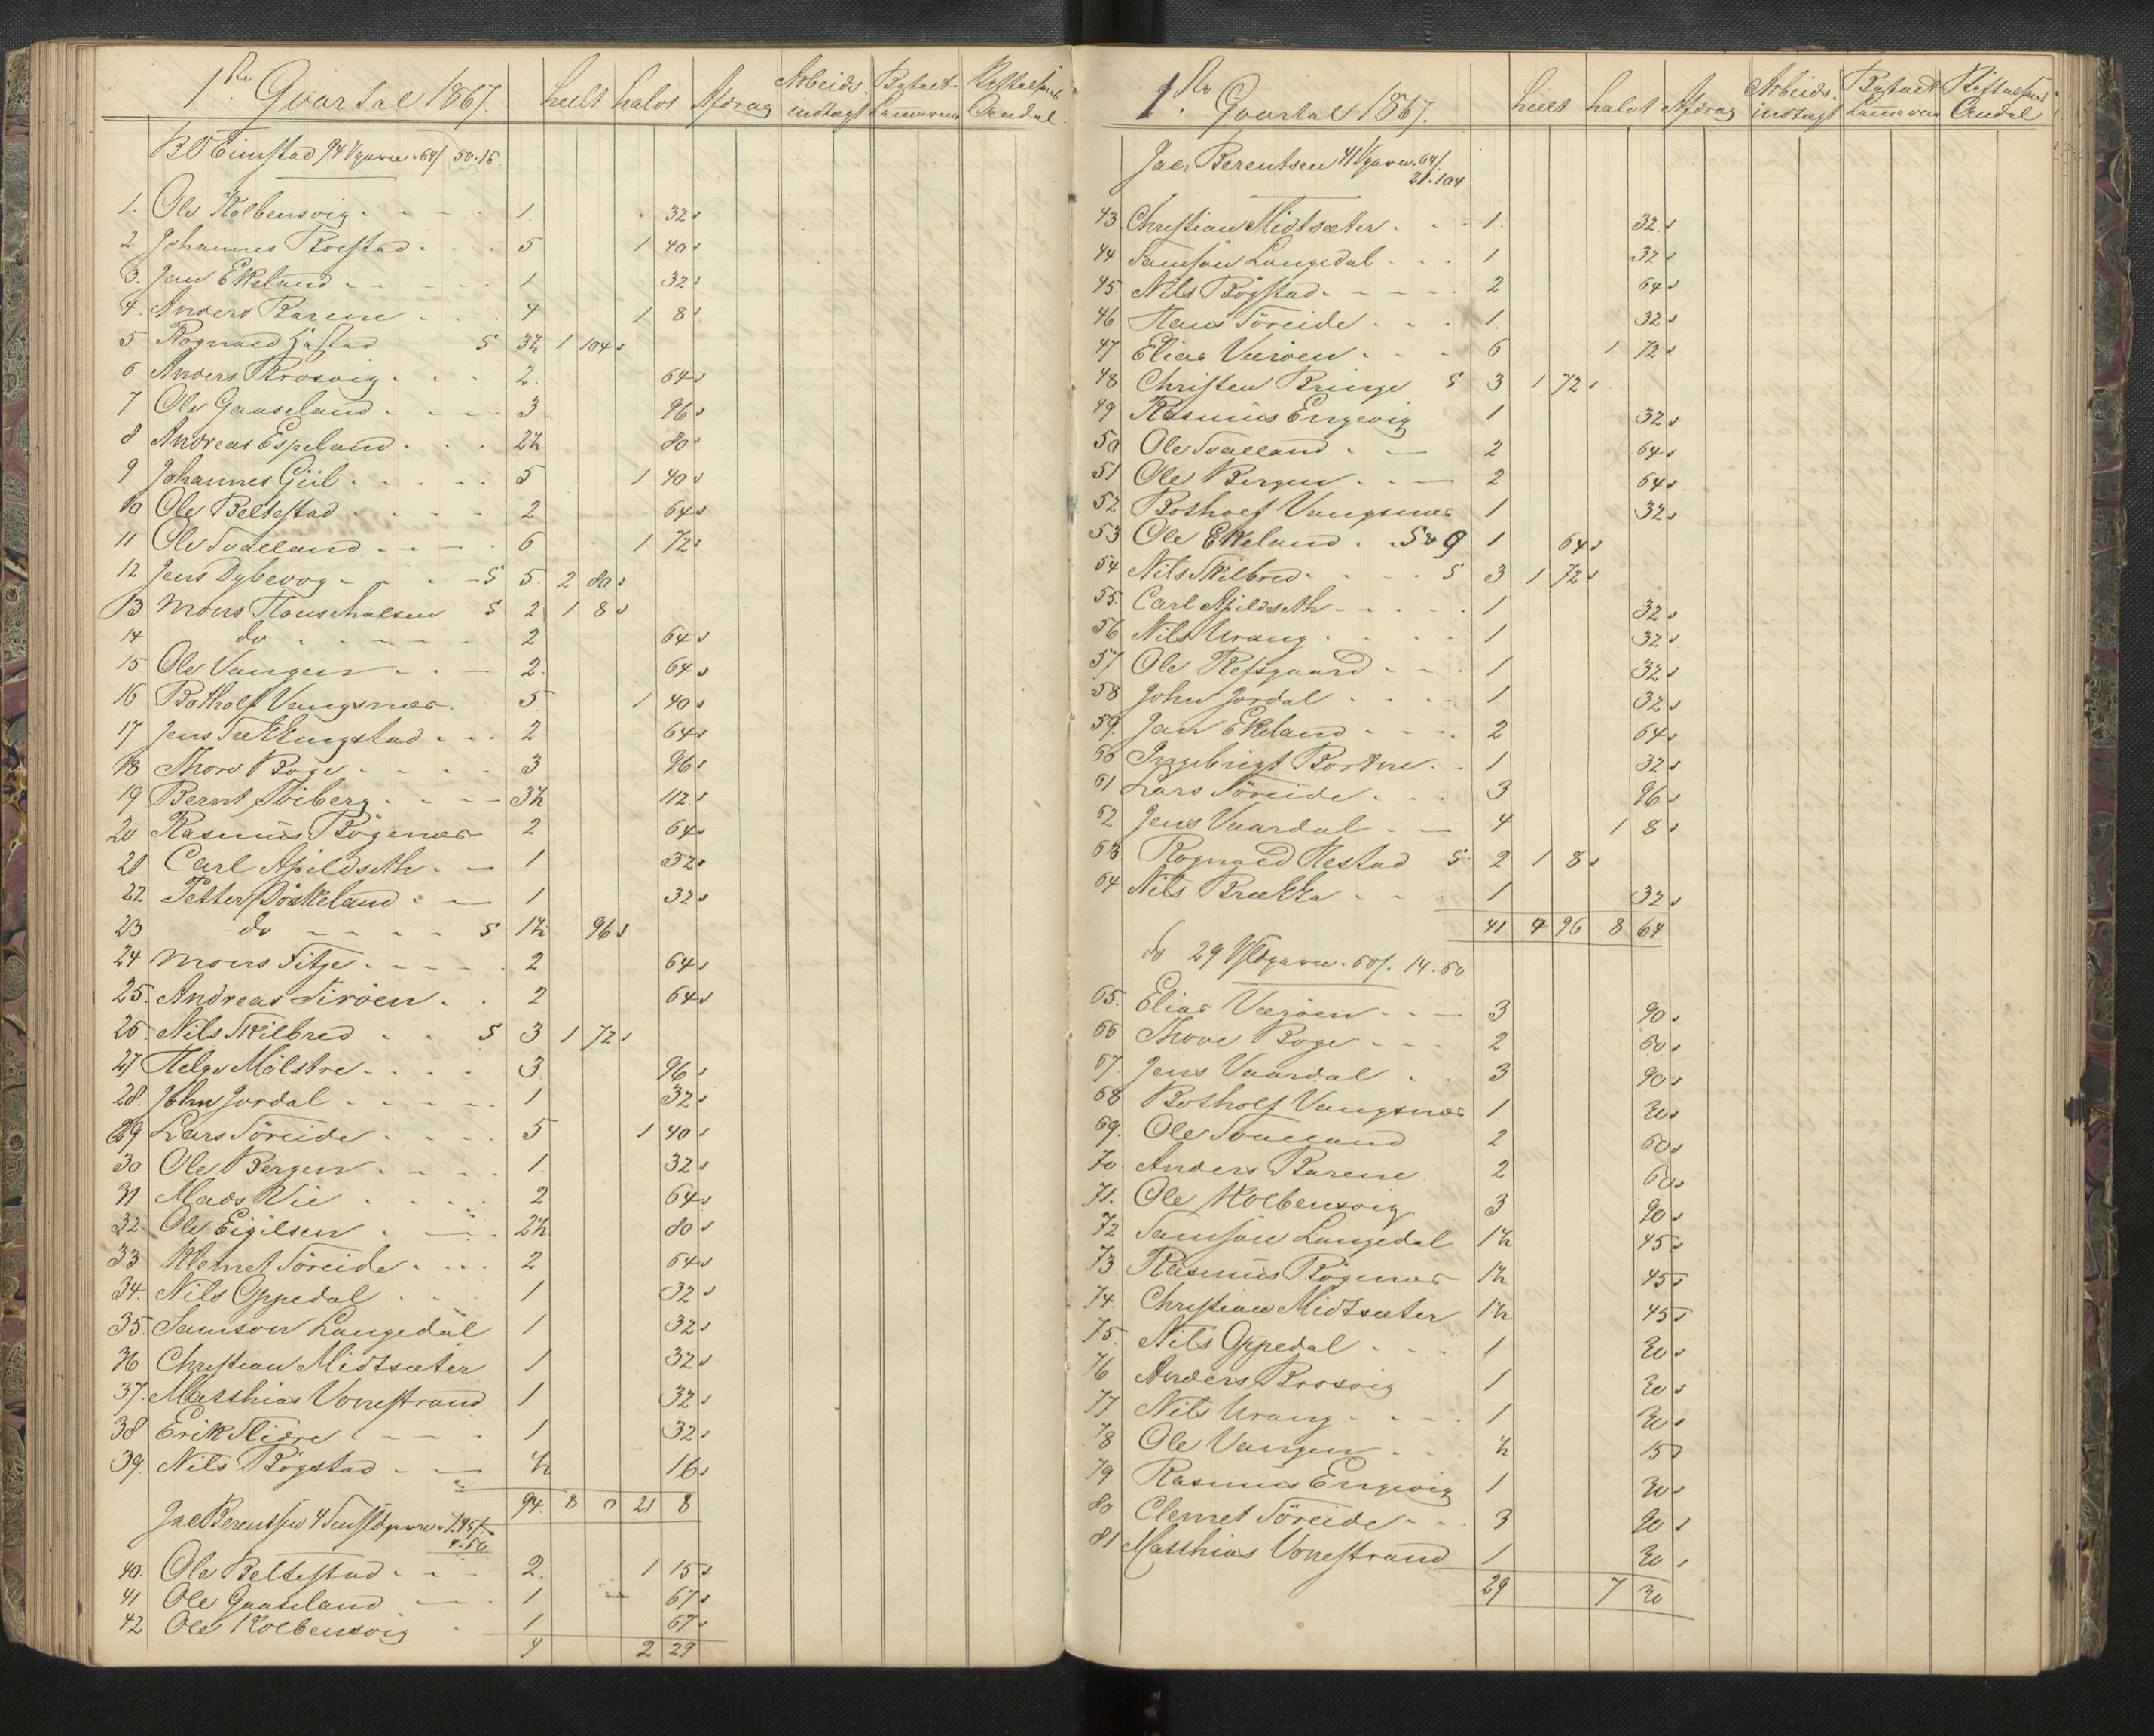 1ste Qvartal 1867. heelt halvt Afdrag Arbeids- indtægt
B O Eimstad 94 64/ 50.16.
1. Ole Kolbensvig 1. 32
2 Johannes Roestad 5 1 40
3. Jan Ekeland 1 32
4. Anders Rarene 4 1 8
5 Rognald S 3½ 1 104
6 Anders Brosvig 2. 64
7 Ole Gaaseland 3 96
8 Andreas Espeland 2½ 80
9 Johannes Giil 5 1 40
10 Ole Beltestad 2 64
11 Ole Svalland 6 1 72
12 Jens Dybevog S 5. 2 80
13 Mons Hauschalsen S 2 1 8
14 do 2 64
15 Ole Vangen 2. 64
16 Botholf Vangsnæs. 5 1 40
17 Jens Tækkingstad 2 64
18 Thore Boge 3 96
19 Bernt 3½ 112
20 Rasmus Bögenæs 2 64
21 Carl Apildseth 1 32
22 Petter Döskeland 1 32
23 do S 1½ 96
24 Mons Fitje 2 64
25. Andreas Tiröen 2 64
26 Nils Skilbred S 3 1 72
27 Helge Mölstre 3 96
28. John Jordal 1 32
29 Lars Söreide 5 1 40
30 Ole Bergen 1. 32
31 Mads Vie 2 64
32 Ole Eigilsen 2½ 80
33 Klemet Söreide 2 64
34. Nils Oppedal 1 32
35. Samson Langedal 1 32
36 Christian Midtsæter 1 32
37. Matthias Vonestrand 1 32
38 Erik 1 32
39. Nils Bögstad ½ 16
94. 8 0 21 8
Jac Berentsen 4
4.50
40. Ole Beltestad 2. 1 15
41 Ole Gaaseland 1 67
42 Ole Kolbensvig 1 67
4 2 29
1ste Qvartal 1867. heelt halvt Afdrag Arbeids- indtægt
Jac. Berentsen 41 64/
21.104
43 Christian Midtsæter 1. 32
44 Samson Langedal 1 32
45. Nils Bögstad 2 64
46 Hans Söreide 1. 32
47 Elias Væröen 6 1 72
48 Christen Bringe S 3 1 72
49 Rasmus Engevig 1 32
50 Ole Svalland 2 64
51 Ole Bergen 2 64
52 Botholf Vangsnæs 1 32
53 Ole Ekeland 1 64
54 Nils Skilbred S 3 1 72
55. Carl Apildseth 1 32
56 Nils Urang 1 32
57 Ole Refsgaard 1 32
58 John Jordal 1 32
59. Jan Ekeland 2 64
60 Ingebrigt Bortne 1 32
61 Lars Söreide 3 96
62. Jens Vaardal 4 1 8
63 Rognald Hestad S 2 1 8
64 Nils Brække 1 32
41 4 96 8 64
do 29 60/. 14.60.
65. Elias Væröen 3 90
66 Thove Boge 2 60
67. Jens Vaardal 3 90
68 Botholf Vangsnæs 1. 30
69. Ole Svalland 2 60
70. Anders Rarene 2 60
71. Ole Kolbensvig 3 90
72 Samson Langedal 1½ 45
73. Rasmus Bögenæs 1½ 45
74. Christian Midtsæter 1½ 45
75. Nils Oppedal 1 30
76 Anders Brosvig 1 30
77 Nils Urang 1 30
78 Ole Vangen ½ 15
79 Rasmus Engevig 1 30
80 Clemet Söreide 3 90
81 Matthias Vonestrand 1 30
29 7 30